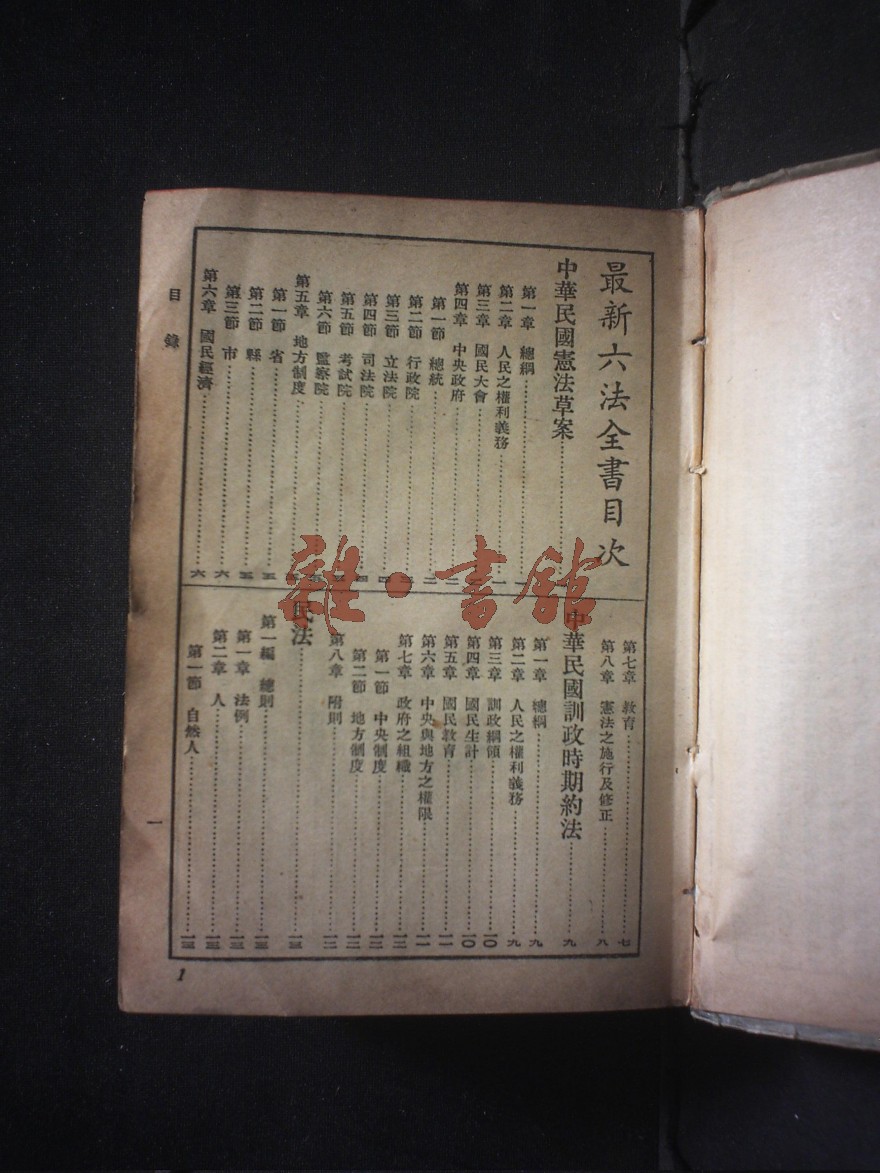 最新六法全書目次
中華民國憲法草案
第一章 總綱
第二章 人民之權利義務
第三章 國民大會
第四章 中央政府
第一節 總統
第二節 行政院
第三節 立法院
第四節 司法院
第五節 考試院
第六節 監察院
第五章 地方制度
第一節 省
第二節 縣 五
第三節 市 六
第六章 國民經濟 六
第七章 教育 七
第八章 憲法之施行及修正 八
中華民國訓政時期約法 九
第一章 總綱 九
第二章 人民之權利義務 九
第三章 訓政綱領 一〇
第四章 國民生計 一〇
第五章 國民教育 一一
第六章 中央與地方之權限 一一
第七章 政府之組織 一二
第一節 中央制度 一二
第二節 地方制度 一二
第八章 附則 一二
民法 一三
第一編 總則 一三
第一章 法例 一三
第二章 人 一三
第一節 自然人 一三
目錄
一
1
雜·書館